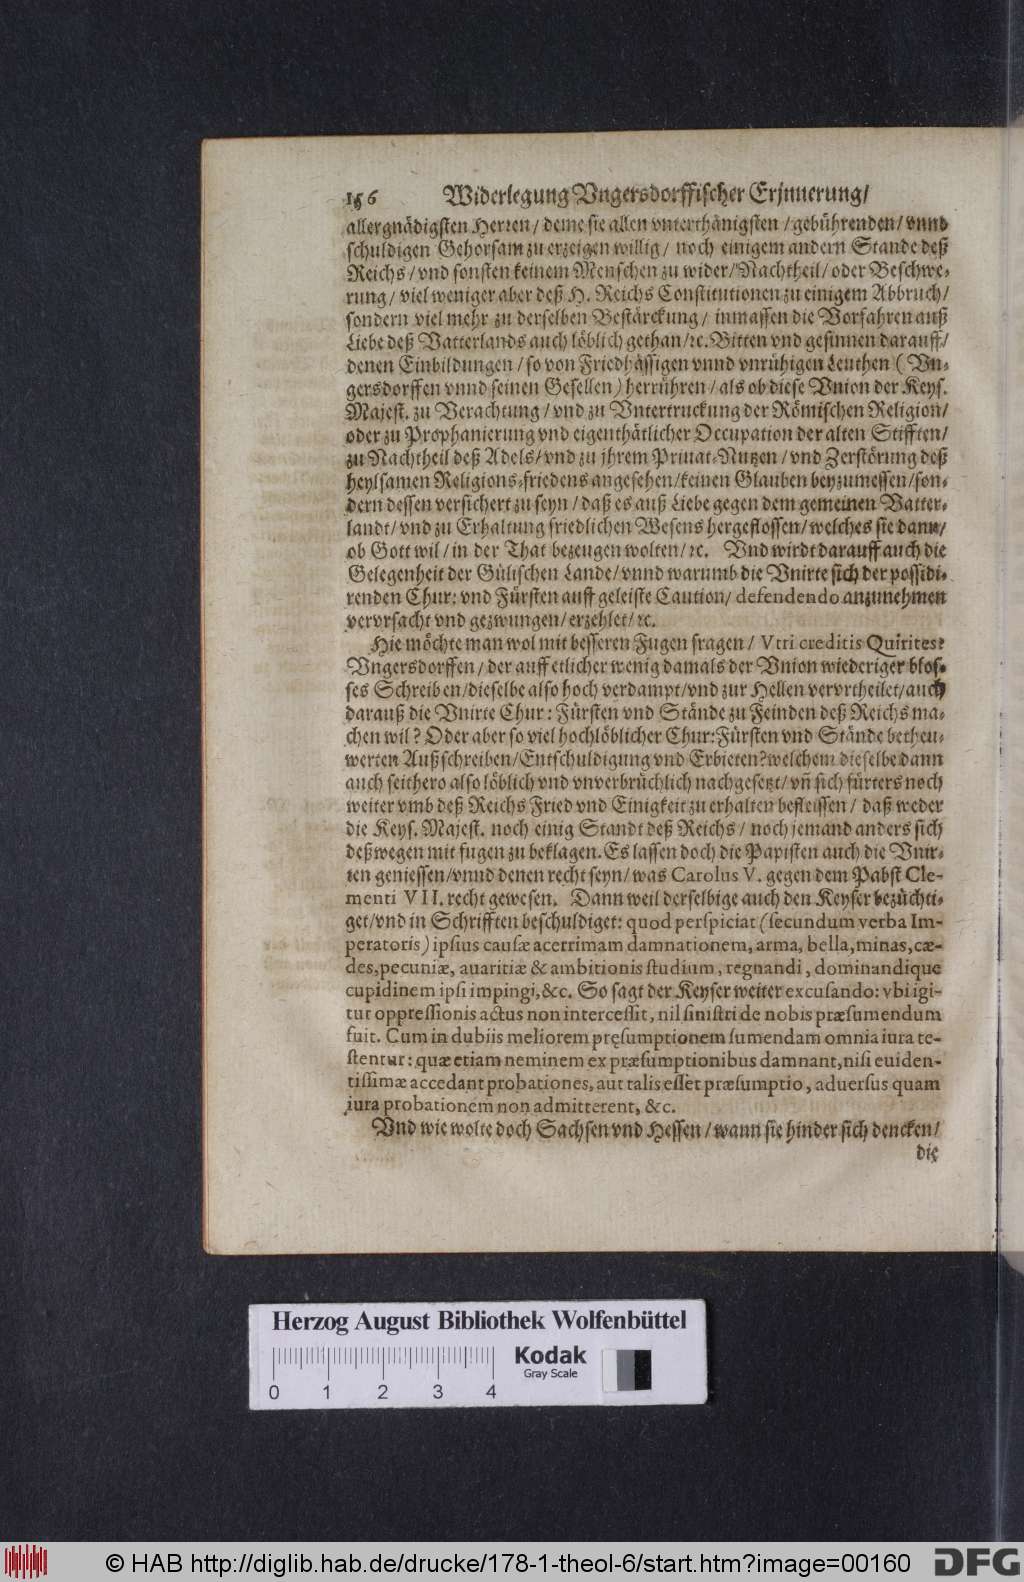 156 Widerlegung Vngersdorffischer Erjnnerung/
allergnädigsten Herren/ deme sie allen vnterthänigsten/ gebührenden/ vnnd
schuldigen Gehorsam zu erzeigen willig/ noch einigem andern Stande deß
Reichs/ vnd sonsten keinem Menschen zu wider/ Nachtheil/ oder Beschwe-
rung/ viel weniger aber deß H. Reichs Constitutionen zu einigem Abbruch/
sondern viel mehr zu derselben Bestärckung/ inmassen die Vorfahren auß
Liebe deß Vatterlands auch löblich gethan/ ꝛc. Bitten vnd gesinnen darauff/
denen Einbildungen/ so von Friedhässigen vnnd vnrühigen Leuthen (Vn-
gersdorffen vnnd seinen Gesellen) herrühren/ als ob diese Vnion der Keys.
Majest. zu Verachtung/ vnd zu Vntertruckung der Römischen Religion/
oder zu Prophanierung vnd eigenthätlicher Occupation der alten Stifften/
zu Nachtheil deß Adels/ vnd zu jhrem Priuat-Nutzen/ vnd Zerstörung deß
heylsamen Religions-friedens angesehen/ keinen Glauben beyzumessen/ son-
dern dessen versichert zu seyn/ daß es auß Liebe gegen dem gemeinen Vatter-
landt/ vnd zu Erhaltung friedlichen Wesens hergeflossen/ welches sie dann/
ob Gott wil/ in der That bezeugen wolten/ ꝛc. Vnd wirdt darauff auch die
Gelegenheit der Gülischen Lande/ vnnd warumb die Vnirte sich der possidi-
renden Chur: vnd Fürsten auff geleiste Caution/ defendendo anzunehmen
vervrsacht vnd gezwungen/ erzehlet/ ꝛc.
Hie möchte man wol mit besseren Fugen fragen/ Vtri creditis Quirites?
Vngersdorffen/ der auff etlicher wenig damals der Vnion wiederiger blos-
ses Schreiben/ dieselbe also hoch verdampt/ vnd zur Hellen vervrtheilet/ auch
darauß die Vnirte Chur: Fürsten vnd Stände zu Feinden deß Reichs ma-
chen wil? Oder aber so viel hochlöblicher Chur: Fürsten vnd Stände betheu-
werten Außschreiben/ Entschuldigung vnd Erbieten? welchem dieselbe dann
auch seithero also löblich vnd vnverbrüchlich nachgesetzt/ vñ sich fürters noch
weiter vmb deß Reichs Fried vnd Einigkeit zu erhalten befleissen/ daß weder
die Keys. Majest. noch einig Standt deß Reichs/ noch jemand anders sich
deßwegen mit fugen zu beklagen. Es lassen doch die Papisten auch die Vnir-
ten geniessen/ vnnd denen recht seyn/ was Carolus V. gegen dem Pabst Cle-
menti VII. recht gewesen. Dann weil derselbige auch den Keyser bezüchti-
get/ vnd in Schrifften beschuldiget: quod perspiciat (secundum verba Im-
peratoris) ipsius causæ acerrimam damnationem, arma, bella, minas, cæ-
des, pecuniæ, auaritiæ & ambitionis studium, regnandi, dominandique
cupidinem ipsi impingi, &c. So sagt der Keyser weiter excusando: vbi igi-
tur oppressionis actus non intercessit, nil sinistri de nobis præsumendum
fuit. Cum in dubiis meliorem pręsumptionem sumendam omnia iura te-
stentur: quæ etiam neminem ex præsumptionibus damnant, nisi euiden-
tissimæ accedant probationes, aut talis esset præsumptio, aduersus quam
iura probationem non admitterent, &c.
Vnd wie wolte doch Sachsen vnd Hessen/ wann sie hinder sich dencken/
die
Herzog August Bibliothek Wolfenbüttel
Kodak
Gray Scale
0 1 2 3 4
© HAB http://diglib.hab.de/drucke/178-1-theol-6/start.htm?image=00160
DFG